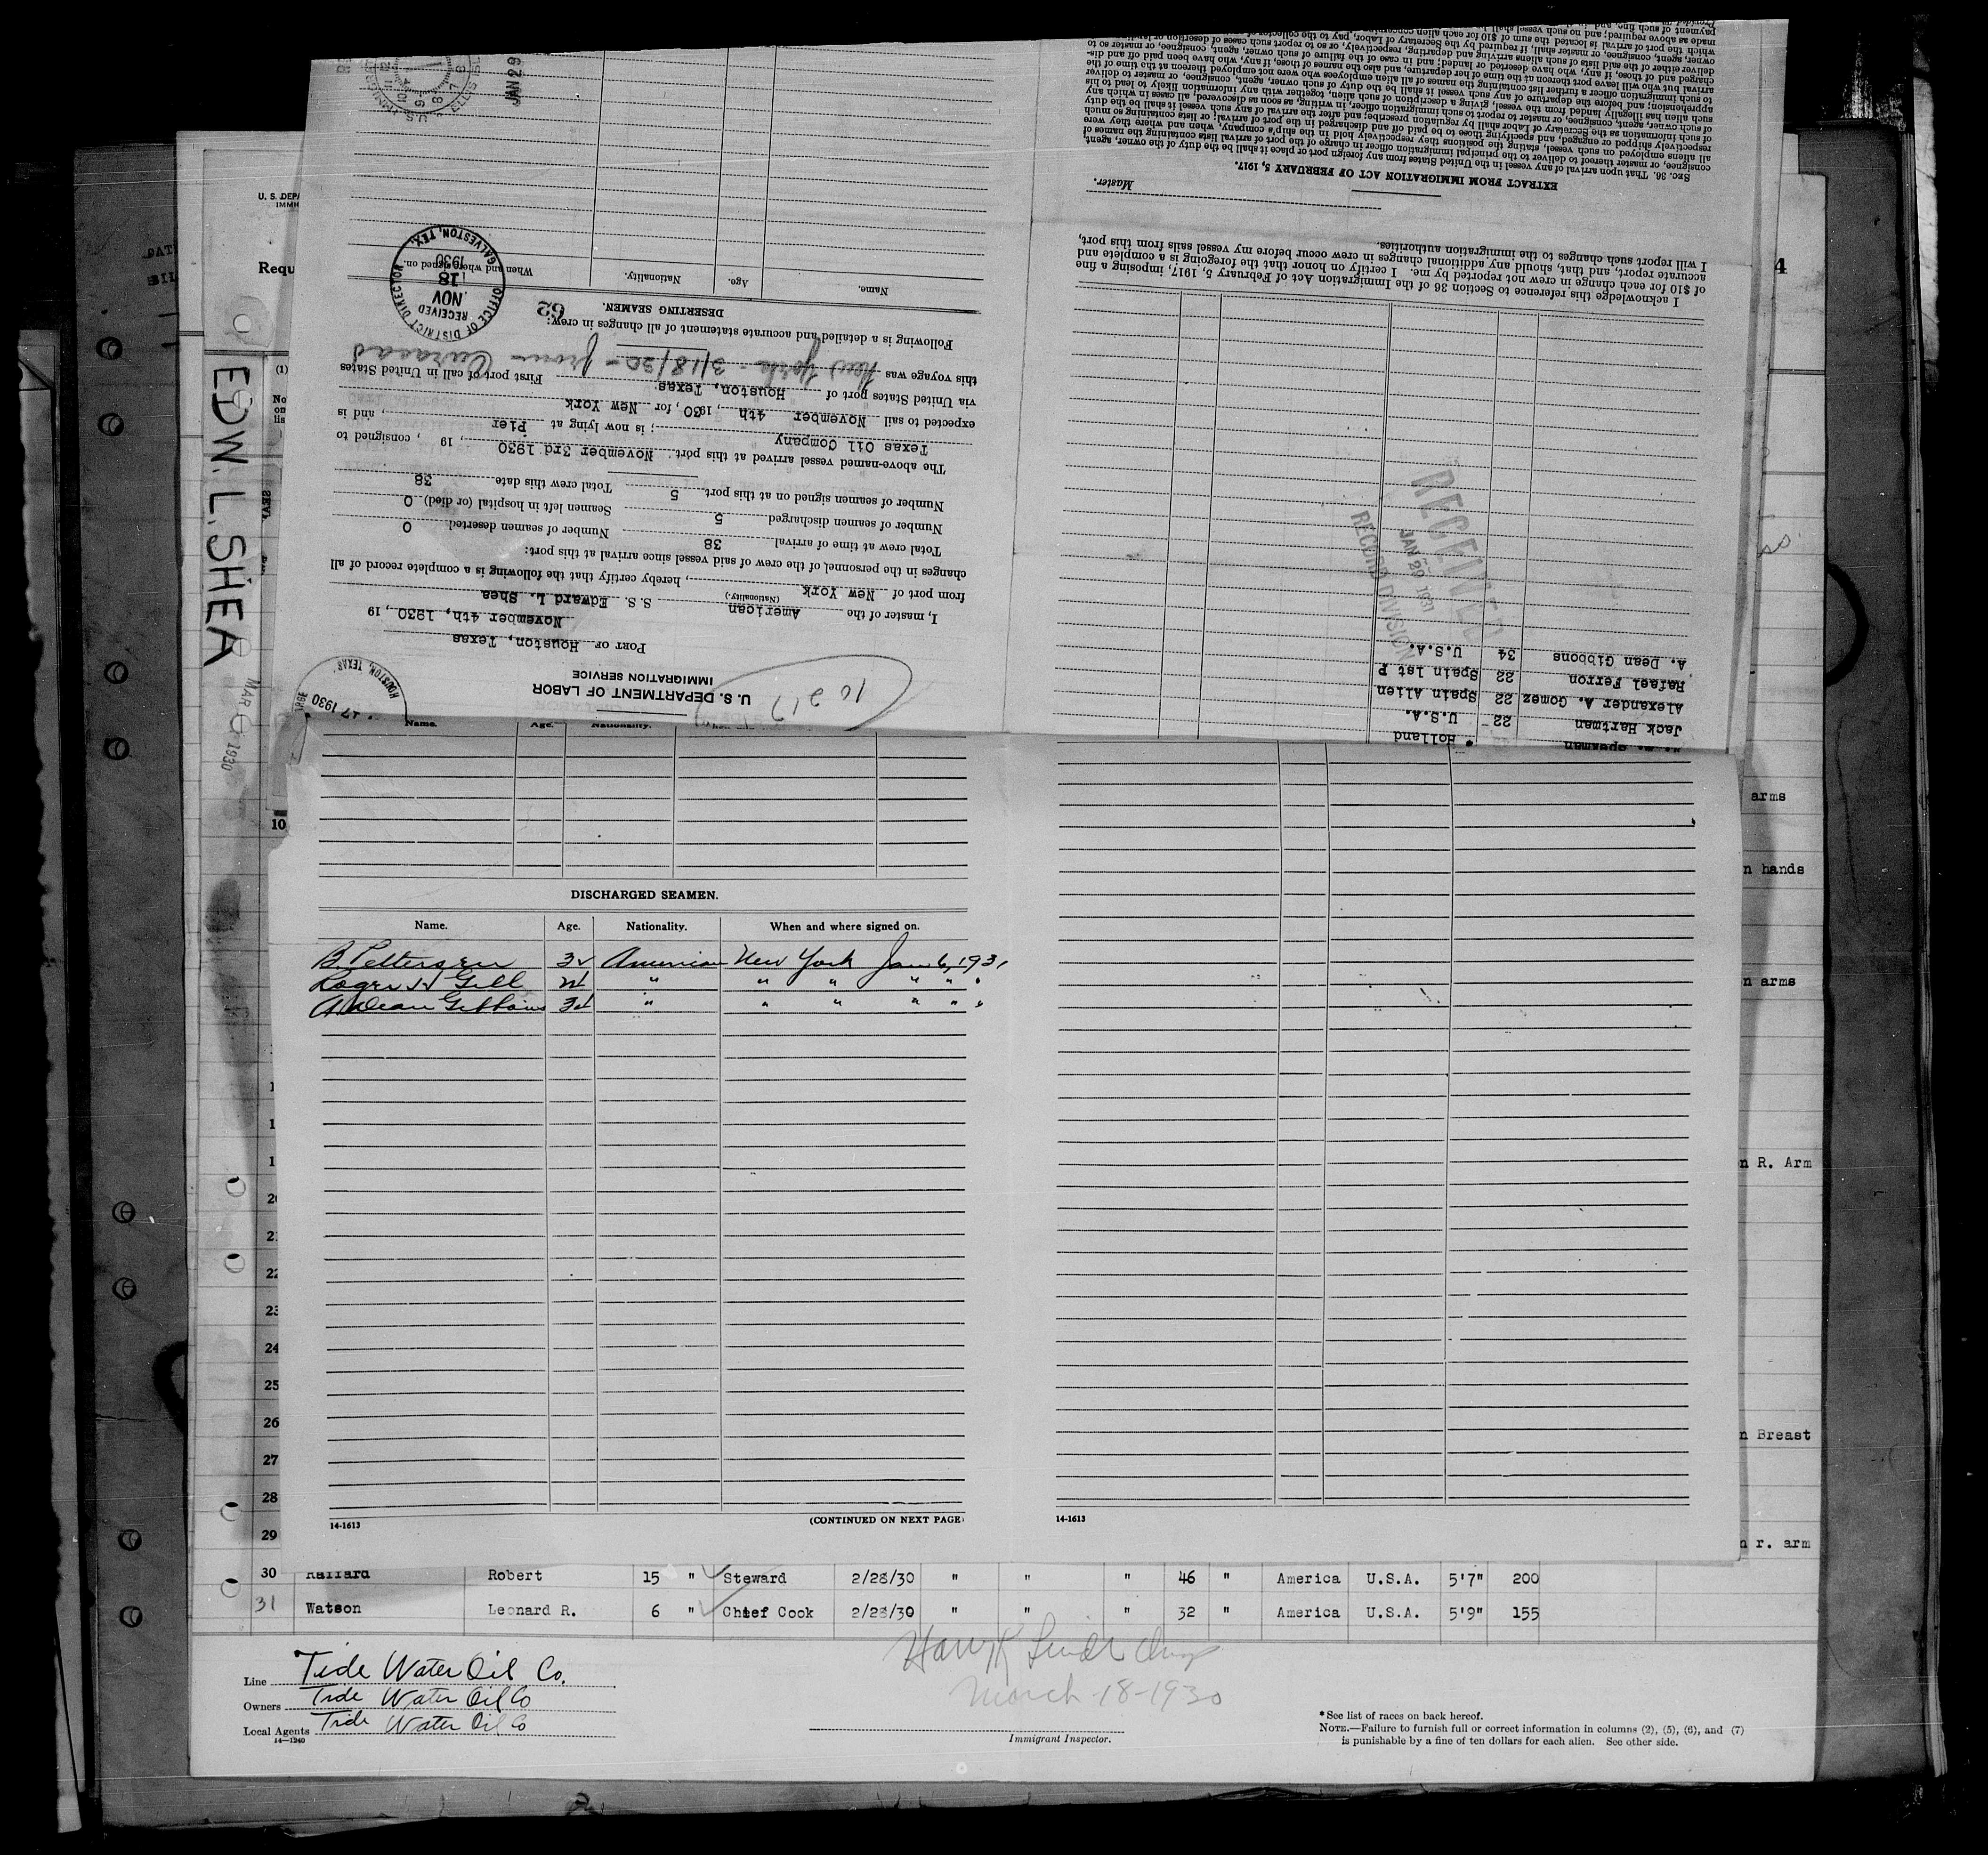 EDW. L. SHEA
MAR 1930
U. S. DEPA
IMMI
Requ
(1)
No
on
lis
4
JAN 29
U. S. DEPARTMENT OF LABOR
IMMIGRATION SERVICE
HOUSTON, TEXAS.
17 1930
PORT OF Houston, Texas
November 4th, 1930, 19
I, master of the American S. S. Edward L. Shea
(Nationality.)
from port of New York, hereby certify that the following is a complete record of all
changes in the personnel of the crew of said vessel since arrival at this port:
Total crew at time of arrival 38 Number of seamen deserted 0
Number of seamen discharged 5 Seamen left in hospital (or died) 0
Number of seamen signed on at this port 5 Total crew this date 38
The above-named vessel arrived at this port November 3rd 1930, 19 , consigned to
Texas Oil Company ; is now lying at Pier , and is
expected to sail November 4th, 1930, for New York
via United States port of Houston, Texas. First port of call in United States
this voyage was New York - 3/18/30 - from Curacao
Following is a detailed and accurate statement of all changes in crew:
62
DESERTING SEAMEN.
Name. Age. Nationality. When and where signed on.
OFFICE OF DISTRICT DIRECTOR
RECEIVED
NOV
18
1930
GALVESTON, TEX.
Holland
Jack Hartman 22 U.S.A.
Alexander A. Gomez 22 Spain Alien
Rafael Ferron 22 Spain 1st P
A. Dean Gibbons 34 U.S.A.
RECEIVED
JAN 29 1931
RECORD DIVISION
I acknowledge this reference to Section 36 of the Immigration Act of February 5, 1917, imposing a fine
of $10 for each change in crew not reported by me. I certify on honor that the foregoing is a complete and
accurate report, and that, should any additional changes in crew occur before my vessel sails from this port,
I will report such changes to the immigration authorities.
Master.
EXTRACT FROM IMMIGRATION ACT OF FEBRUARY 5, 1917.
SEC. 36. That upon arrival of any vessel in the United States from any foreign port or place it shall be the duty of the owner, agent,
consignee, or master thereof to deliver to the principal immigration officer in charge of the port of arrival lists containing the names of
all aliens employed on such vessel, stating the positions they respectively hold in the ship's company, when and where they were
respectively shipped or engaged, and specifying those to be paid off and discharged in the port of arrival; or lists containing so much
of such information as the Secretary of Labor shall by regulation prescribe; and after the arrival of any such vessel it shall be the duty
of such owner, agent, consignee, or master to report to such immigration officer, in writing, as soon as discovered, all cases in which any
such alien has illegally landed from the vessel, giving a description of such alien, together with any information likely to lead to his
apprehension; and before the departure of any such vessel it shall be the duty of such owner, agent, consignee, or master to deliver
to such immigration officer a further list containing the names of all alien employees who were not employed thereon at the time of the
arrival but who will leave port thereon at the time of her departure, and also the names of those, if any, who have been paid off and dis-
charged and of those, if any, who have deserted or landed; and in case of the failure of such owner, agent, consignee, or master so to
deliver either of the said lists of such aliens arriving and departing, respectively, or so to report such cases of desertion or
Name. Age. Nationality.
DISCHARGED SEAMEN.
Name. Age. Nationality. When and where signed on.
B. Pettersen 32 American New York Jan 6, 1931
Roger H Gill 24 " " " " " "
A. Dean Gibbons 34 " " " " " "
14-1613 (CONTINUED ON NEXT PAGE)
14-1613
arms
n hands
n arms
n R. Arm
n Breast
n r. arm
10
20
21
22
23
24
25
26
27
28
29
30 Robert 15 " Steward 2/28/30 " " " 46 " America U.S.A. 5'7" 200
31 Watson Leonard R. 6 " Chief Cook 2/28/30 " " " 32 " America U.S.A. 5'9" 155
Line Tide Water Oil Co.
Owners Tide Water Oil Co
Local Agents Tide Water Oil Co
14—1240
March 18-1930
Immigrant Inspector.
* See list of races on back hereof.
NOTE.—Failure to furnish full or correct information in columns (2), (5), (6), and (7)
is punishable by a fine of ten dollars for each alien. See other side.